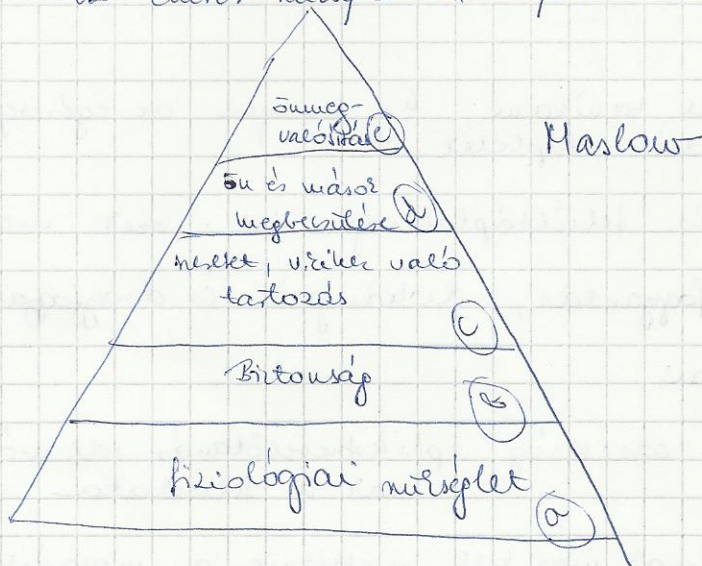 önmeg-
valósítás e
ön és mások
megbecsülése d
szeretet, vkihez való
tartozás
c
Biztonság
b
fiziológiai szükséglet
a
Maslow